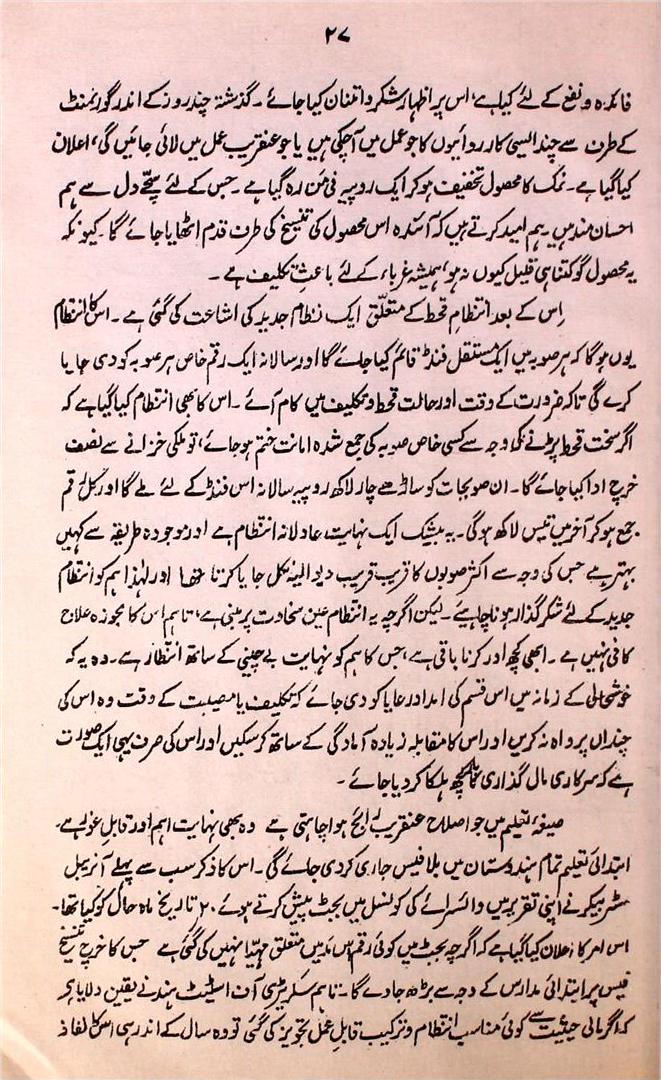 ۲۷
فائدہ و نفع کے لئے کیا ہے، اس پر اظہار شکر و امتنان کیا جائے۔ گذشتہ چند روز کے اندر گورنمنٹ
کے طرف سے چند ایسی کارروائیوں کا جو عمل میں آ چکی ہیں یا جو عنقریب عمل میں لائی جائیں گی، اعلان
کیا گیا ہے۔ نمک کا محصول تخفیف ہو کر ایک روپیہ فی من رہ گیا ہے۔ جس کے لئے سچے دل سے ہم
احسان مند ہیں۔ ہم امید کرتے ہیں کہ آئندہ اس محصول کی تنسیخ کی طرف قدم اٹھایا جائے گا۔ کیونکہ
یہ محصول گو کتنا ہی قلیل کیوں نہ ہو، ہمیشہ غرباء کے لئے باعثِ تکلیف ہے۔
اِس کے بعد انتظامِ قحط کے متعلّق ایک نظام جدید کی اشاعت کی گئی ہے۔ اس کا انتظام
یوں ہوگا کہ ہر صوبہ میں ایک مستقل فنڈ قائم کیا جائے گا اور سالانہ ایک رقم خاص ہر صوبہ کو دی جایا
کرے گی تاکہ ضرورت کے وقت اور حالت قحط و تکلیف میں کام آئے۔ اس کا بھی انتظام کیا گیا ہے کہ
اگر سخت قحط پڑنے کی وجہ سے کسی خاص صوبہ کی جمع شدہ امانت ختم ہو جائے، تو ملکی خزانے سے نصف
خرچ ادا کیا جائے گا۔ ان صوبجات کو ساڑھے چار لاکھ روپیہ سالانہ اس فنڈ کے لئے ملے گا اور کُل رقم
جمع ہو کر آخر میں تیس لاکھ ہوگی۔ یہ بیشک ایک نہایت، عادلانہ انتظام ہے اور موجودہ طریقہ سے کہیں
بہتر ہے جس کی وجہ سے اکثر صوبوں کا قریب قریب دیوالیہ نکل جایا کرتا تھا اور لہٰذا ہم کو انتظام
جدید کے لئے شکر گذار ہونا چاہیے۔ لیکن اگرچہ یہ انتظام عین سخاوت پر مبنی ہے، تاہم اس کا مجوزہ علاج
کافی نہیں ہے۔ ابھی کچھ اور کرنا باقی ہے، جس کا ہم کو نہایت بے چینی کے ساتھ انتظار ہے۔ وہ یہ کہ
خوشحالی کے زمانہ میں اس قسم کی امداد رعایا کو دی جائے کہ تکلیف یا مصیبت کے وقت وہ اس کی
چنداں پرواہ نہ کریں اور اس کا مقابلہ زیادہ آمادگی کے ساتھ کر سکیں اور اس کی صرف یہی ایک صورت
ہے کہ سرکاری مال گذاری کا کچھ ہلکا کر دیا جائے۔
صیغہٴ تعلیم میں جو اصلاح عنقریب رائج ہوا چاہتی ہے وہ بھی نہایت اہم اور قابل غور ہے۔
ابتدائی تعلیم تمام ہندوستان میں بلا فیس جاری کر دی جائے گی۔ اس کا ذکر سب سے پہلے آنریبل
مسٹر بیکر نے اپنی تقریر میں وائسرائے کی کونسل میں بجٹ پیش کرتے ہوئے ۲۰ تاریخ ماہ حال کو کیا تھا۔
اس امر کا اعلان کیا گیا ہے کہ اگرچہ بجٹ میں کوئی رقم اس مد میں متعلق مہیّا نہیں کی گئی ہے جس کا خرچ تنسیخ
فیس پر ابتدائی مدارس کے وجہ سے بڑھ جاوے گا۔ تاہم سکریٹری آف اسٹیٹ ہند نے یقین دلایا ہے
کہ اگر مالی حیثیت سے کوئی مناسب انتظام و ترکیب قابل عمل تجویز کی گئی تو وہ سال کے اندر ہی اس کا نفاذ